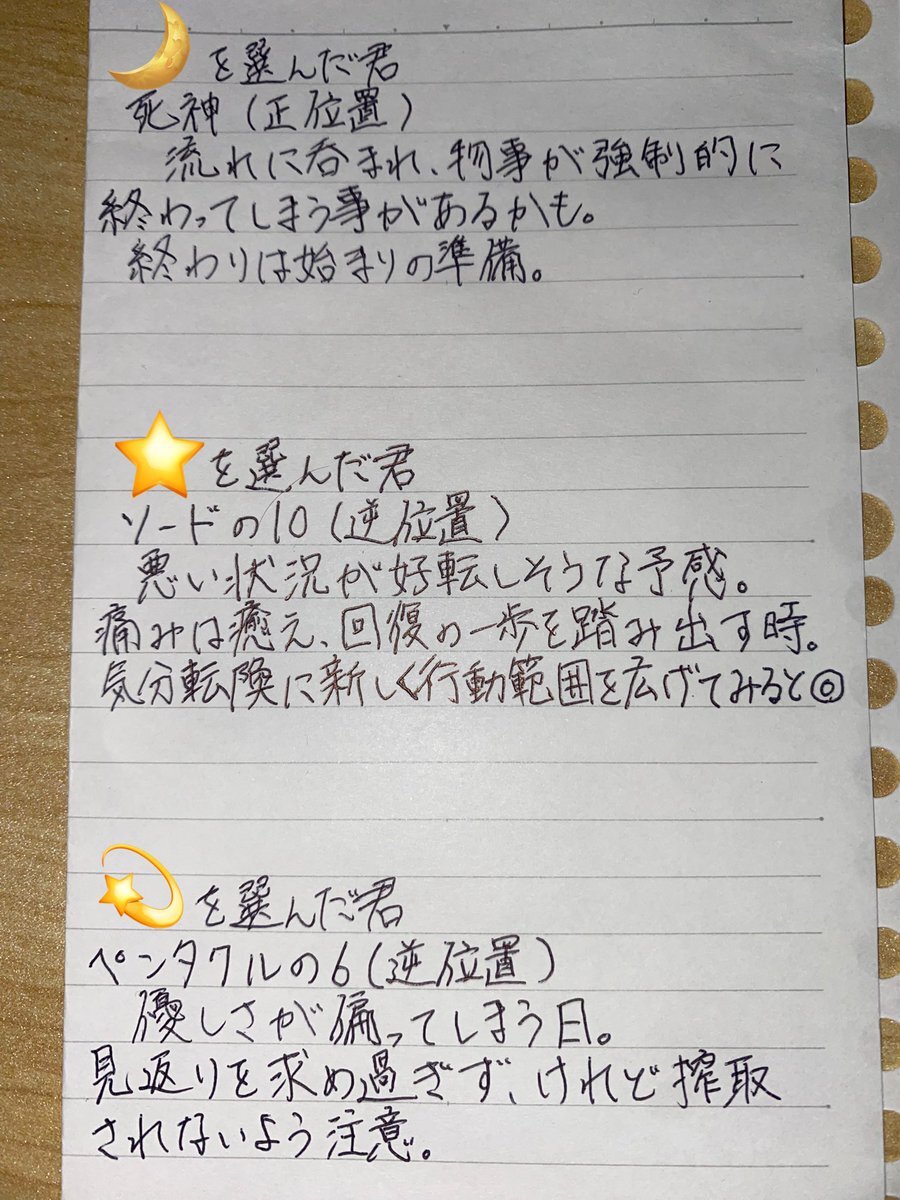 🌙を選んだ君
死神（正位置）
流れに呑まれ、物事が強制的に
終わってしまう事があるかも。
終わりは始まりの準備。
⭐を選んだ君
ソードの10（逆位置）
悪い状況が好転しそうな予感。
痛みは癒え、回復の一歩を踏み出す時。
気分転換に新しく行動範囲を広げてみると◎
💫を選んだ君
ペンタクルの6（逆位置）
優しさが偏ってしまう日。
見返りを求め過ぎず、けれど搾取
されないよう注意。